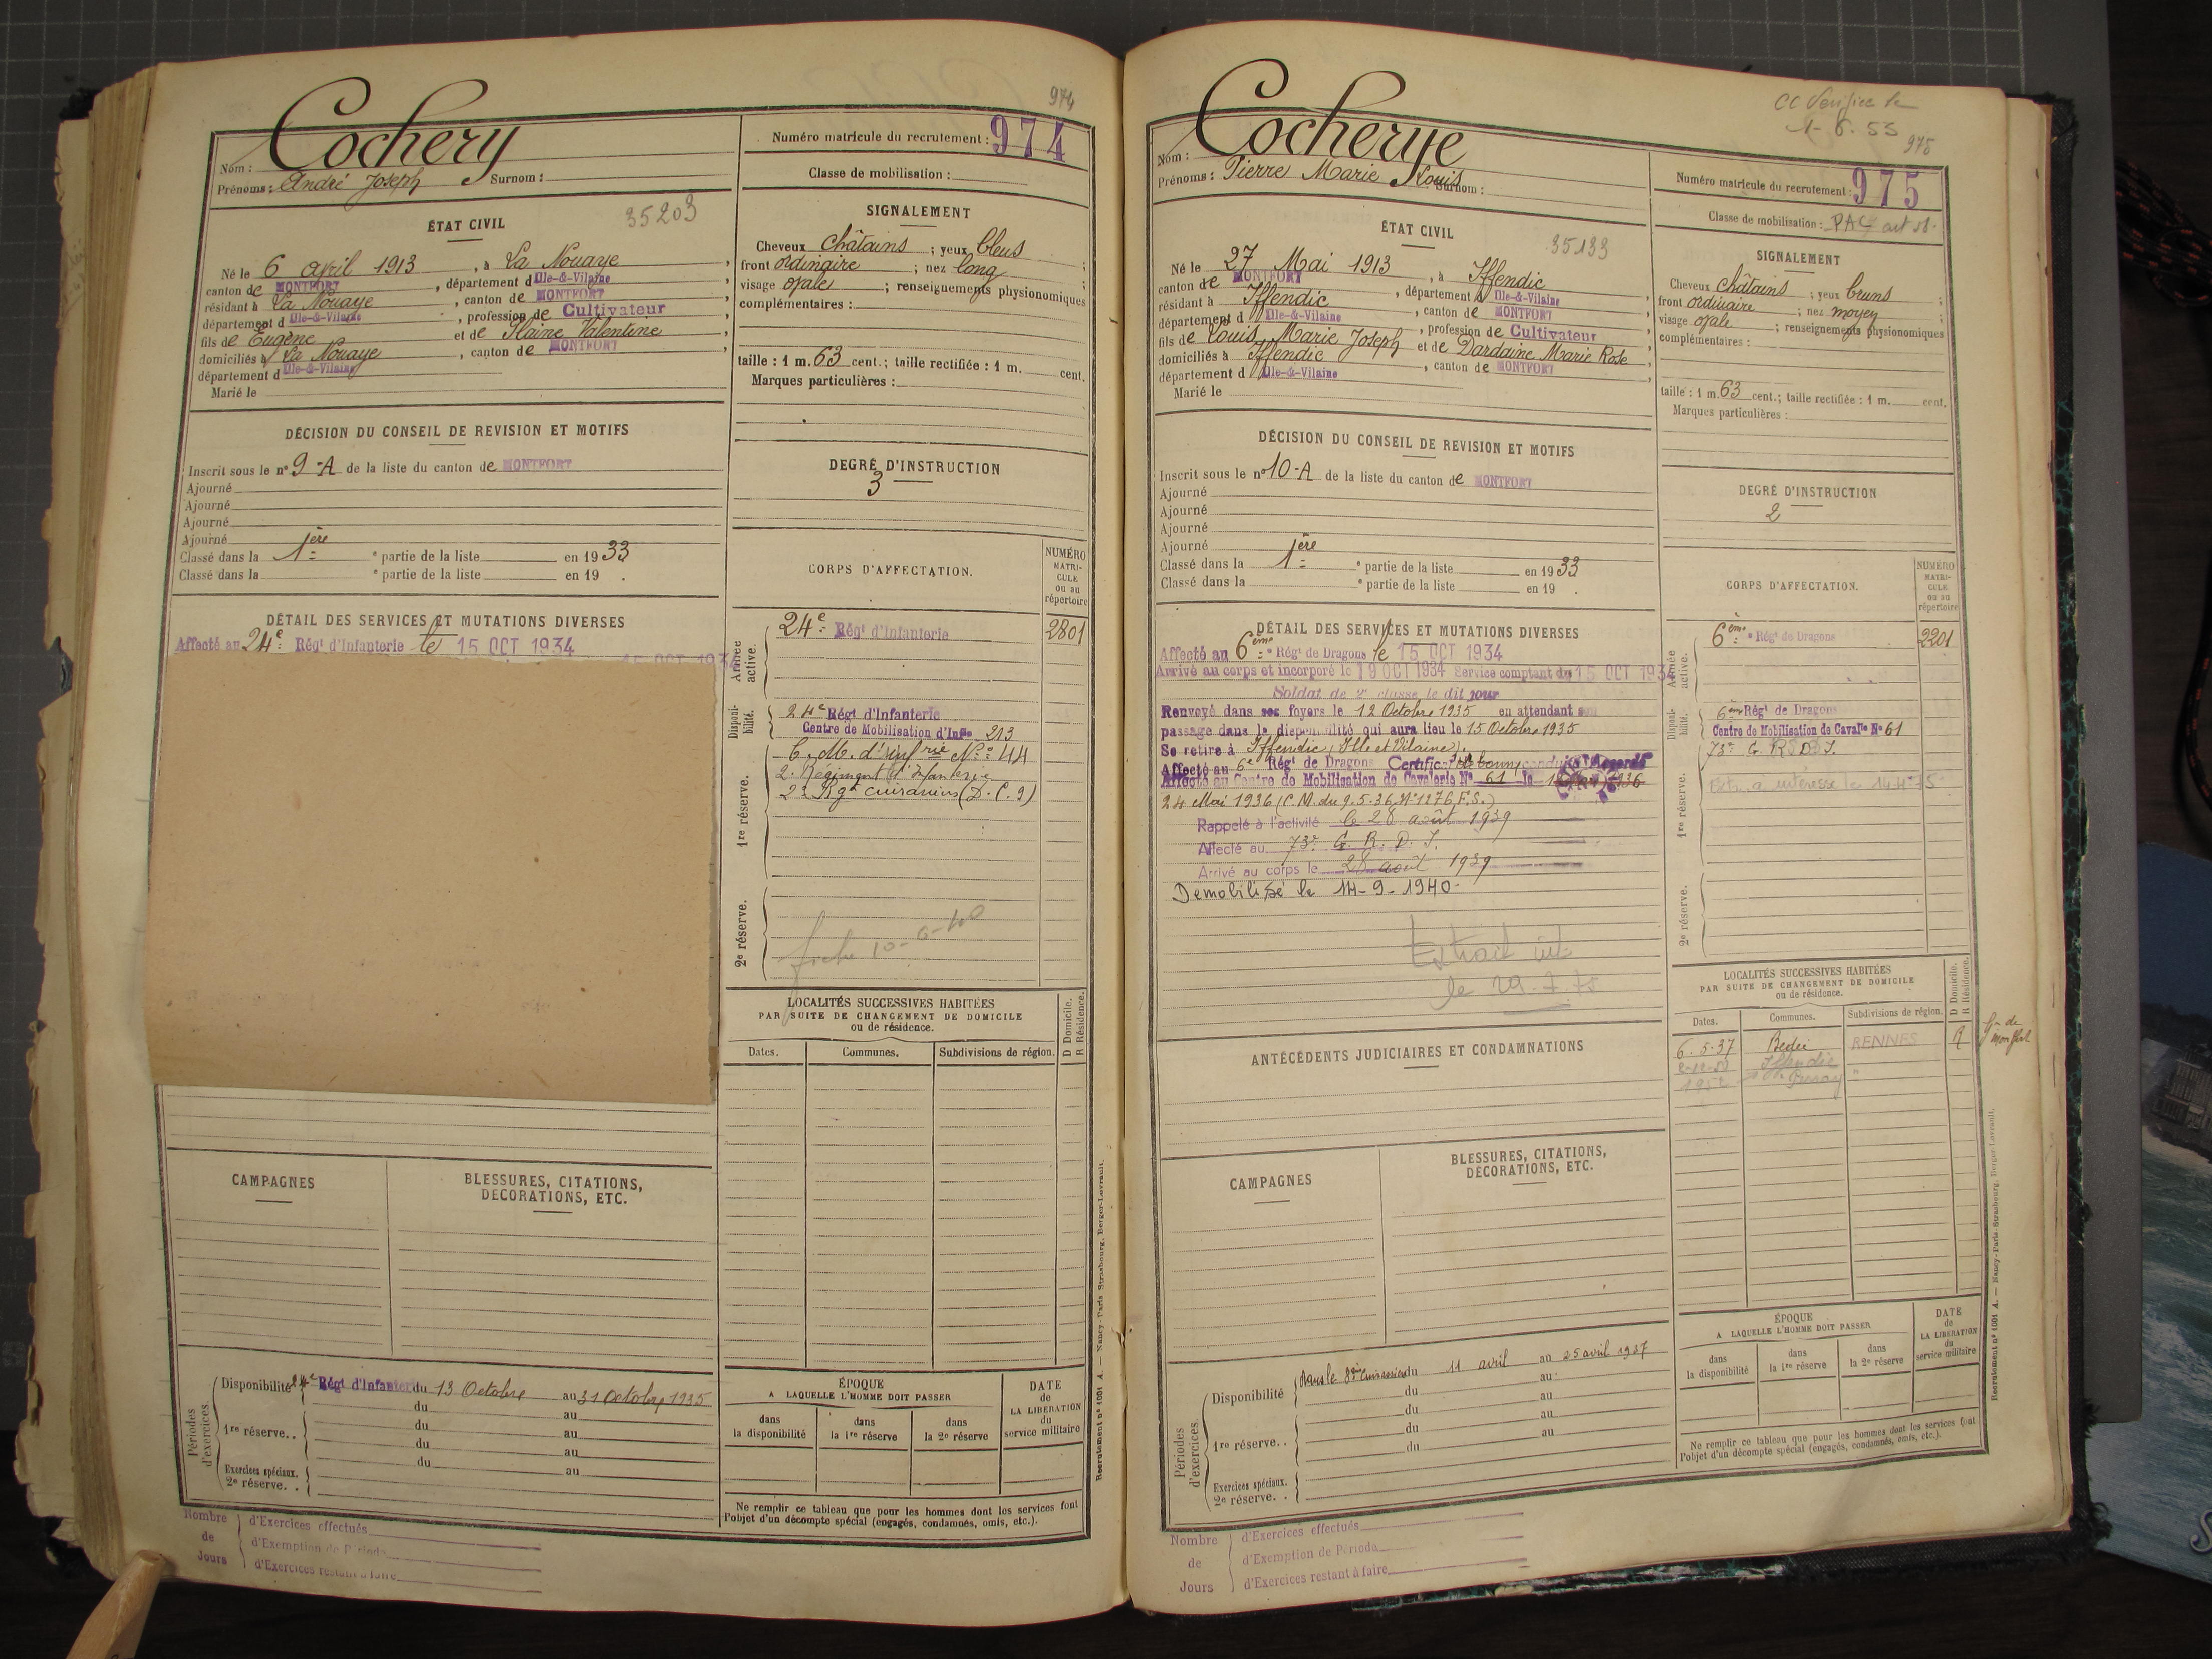 974
Cochery
Nom :
Prénoms : André Joseph Surnom :
Numéro matricule du recrutement : 974
Classe de mobilisation :
ÉTAT CIVIL
35203
Né le 6 avril 1913, à La Nouaye,
canton de MONTFORT, département d Ille-&-Vilaine
résidant à La Nouaye, canton de MONTFORT
département d Ille-&-Vilaine, profession de Cultivateur
fils de Eugène et de Slaine Valentine,
domiciliés à La Nouaye, canton de MONTFORT,
département d Ille-&-Vilaine
Marié le
SIGNALEMENT
Cheveux châtains ; yeux bleus ;
front ordinaire ; nez long ;
visage ovale ; renseignements physionomiques
complémentaires :
taille : 1 m. 63 cent.; taille rectifiée : 1 m. cent.
Marques particulières :
DÉCISION DU CONSEIL DE REVISION ET MOTIFS
Inscrit sous le n° 9-A de la liste du canton de MONTFORT
Ajourné
Ajourné
Ajourné
Ajourné
Classé dans la 1ère e partie de la liste en 1933
Classé dans la e partie de la liste en 19 .
DEGRÉ D'INSTRUCTION
3
DÉTAIL DES SERVICES ET MUTATIONS DIVERSES
Affecté au 24e Régt d'Infanterie le 15 OCT 1934
15 OCT 1934
CORPS D'AFFECTATION.
NUMÉRO
MATRI-
CULE
ou au
répertoire
Armée active.
24e Régt d'Infanterie 2801
Disponi-
bilité.
24e Régt d'Infanterie
Centre de Mobilisation d'Infie 213
1re réserve.
C. M. d'Infrie N° 44
2. Régiment d'Infanterie
22 Rgt cuirassiers (D. C. 9)
2e réserve.
fiche 10-6-40
LOCALITÉS SUCCESSIVES HABITÉES
PAR SUITE DE CHANGEMENT DE DOMICILE
ou de résidence.
D Domicile.
R Résidence.
Dates. Communes. Subdivisions de région.
CAMPAGNES
BLESSURES, CITATIONS,
DÉCORATIONS, ETC.
Périodes d'exercices.
Disponibilité 24e Régt d'Infanterie du 13 Octobre au 31 Octobre 1935
du au
1re réserve. . du au
du au
du au
Exercices spéciaux.
2e réserve. .
ÉPOQUE
A LAQUELLE L'HOMME DOIT PASSER
dans
la disponibilité
dans
la 1re réserve
dans
la 2e réserve
DATE
de
LA LIBÉRATION
du
service militaire
Ne remplir ce tableau que pour les hommes dont les services font
l'objet d'un décompte spécial (engagés, condamnés, omis, etc.).
Nombre
de
Jours
d'Exercices effectués
d'Exemption de Période
d'Exercices restant à faire
Recrutement n° 1001 A. — Nancy-Paris-Strasbourg, Berger-Levrault.
CC Vérifiée le
1-6.53
975
Cocherye
Nom :
Prénoms : Pierre Marie Louis Surnom :
Numéro matricule du recrutement : 975
Classe de mobilisation : PAC art 58.
ÉTAT CIVIL
35133
Né le 27 Mai 1913, à Iffendic
canton de MONTFORT, département d Ille-&-Vilaine,
résidant à Iffendic, canton de MONTFORT,
département d Ille-&-Vilaine, profession de Cultivateur
fils de Louis Marie Joseph et de Dardaine Marie Rose,
domiciliés à Iffendic, canton de MONTFORT,
département d Ille-&-Vilaine
Marié le
SIGNALEMENT
Cheveux châtains ; yeux bruns ;
front ordinaire ; nez moyen ;
visage ovale ; renseignements physionomiques
complémentaires :
taille : 1 m. 63 cent.; taille rectifiée : 1 m. cent.
Marques particulières :
DÉCISION DU CONSEIL DE REVISION ET MOTIFS
Inscrit sous le n° 10-A de la liste du canton de MONTFORT
Ajourné
Ajourné
Ajourné
Ajourné
Classé dans la 1ère e partie de la liste en 1933
Classé dans la e partie de la liste en 19 .
DEGRÉ D'INSTRUCTION
2
DÉTAIL DES SERVICES ET MUTATIONS DIVERSES
Affecté au 6ème Régt de Dragons le 15 OCT 1934
Arrivé au corps et incorporé le 19 OCT 1934 Service comptant du 15 OCT 1934
Soldat de 2e classe le dit jour
Renvoyé dans ses foyers le 12 Octobre 1935 en attendant son
passage dans la disponibilité qui aura lieu le 15 Octobre 1935
Se retire à Iffendic (Ille et Vilaine).
Affecté au 6e Régt de Dragons Certificat de bonne conduite Accordé
Affecté au Centre de Mobilisation de Cavalerie N° 61 le 1936
24 Mai 1936 (C.M. du 9.5.36, N° 1276, F.S.)
Rappelé à l'activité le 28 août 1939
Affecté au 73e G. R. D. I.
Arrivé au corps le 28 août 1939
Démobilisé le 14-9-1940.
Extrait int
le 29.7.75
CORPS D'AFFECTATION.
NUMÉRO
MATRI-
CULE
ou au
répertoire
Armée active.
6ème Régt de Dragons 2201
Disponi-
bilité.
6ème Régt de Dragons
Centre de Mobilisation de Cavalie N° 61
1re réserve.
73e G. R. D. I.
Ext. à intéressé le 14-4-75
2e réserve.
LOCALITÉS SUCCESSIVES HABITÉES
PAR SUITE DE CHANGEMENT DE DOMICILE
ou de résidence.
D Domicile.
R Résidence.
Dates. Communes. Subdivisions de région.
6.5.37 Bédée RENNES R
Iffendic
1952
ANTÉCÉDENTS JUDICIAIRES ET CONDAMNATIONS
CAMPAGNES
BLESSURES, CITATIONS,
DÉCORATIONS, ETC.
Périodes d'exercices.
Disponibilité Dans le 8ème Cuirassiers du 11 avril au 25 avril 1937
du au
du au
1re réserve. . du au
du au
Exercices spéciaux.
2e réserve. .
ÉPOQUE
A LAQUELLE L'HOMME DOIT PASSER
dans
la disponibilité
dans
la 1re réserve
dans
la 2e réserve
DATE
de
LA LIBÉRATION
du
service militaire
Ne remplir ce tableau que pour les hommes dont les services font
l'objet d'un décompte spécial (engagés, condamnés, omis, etc.).
Nombre
de
Jours
d'Exercices effectués
d'Exemption de Période
d'Exercices restant à faire
Recrutement n° 1001 A. — Nancy-Paris-Strasbourg, Berger-Levrault.